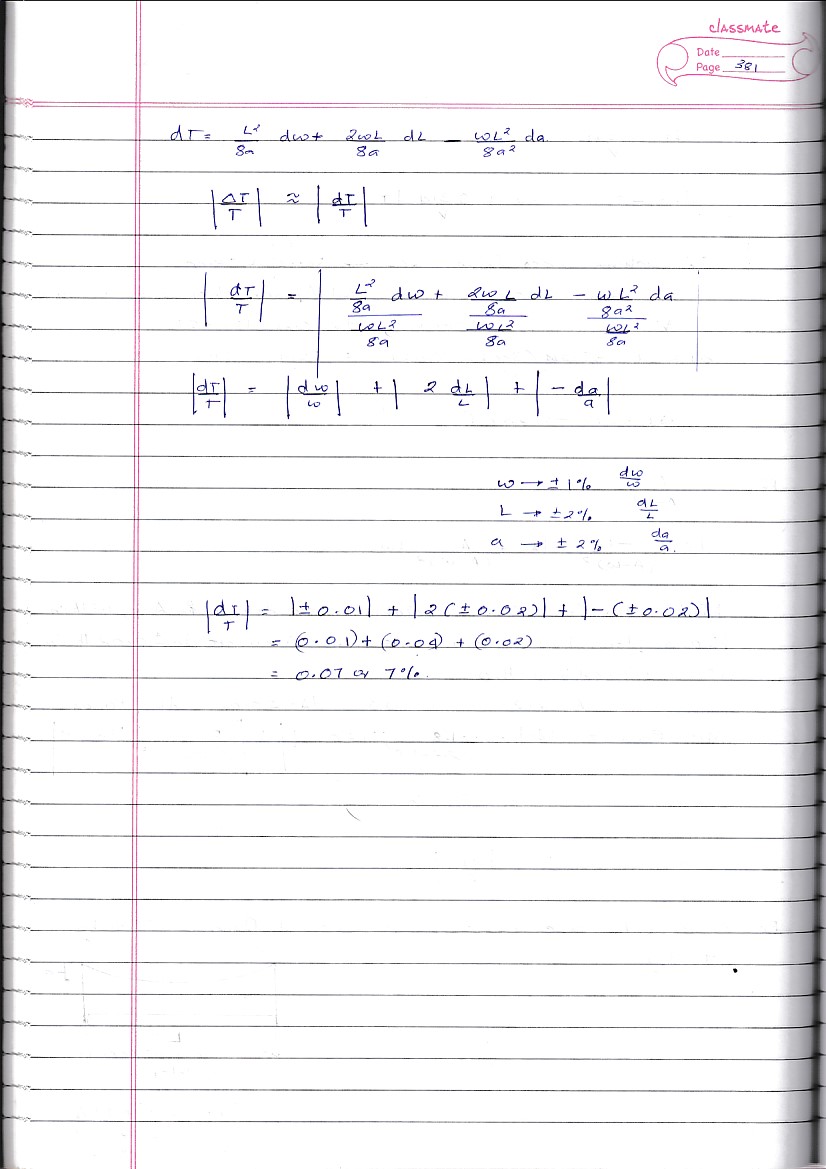 classmate
Date
Page 381
dT = L²/8a dw + 2wL/8a dL − wL²/8a² da
|ΔT/T| ≈ |dT/T|
|dT/T| = | (L²/8a dw)/(wL²/8a) + (2wL/8a dL)/(wL²/8a) − (wL²/8a² da)/(wL²/8a) |
|dT/T| = |dw/w| + |2 dL/L| + |− da/a|
w → ± 1% dw/w
L → ± 2% dL/L
a → ± 2% da/a.
|dT/T| = |± 0.01| + |2(± 0.02)| + |−(± 0.02)|
= (0.01) + (0.04) + (0.02)
= 0.07 or 7%.